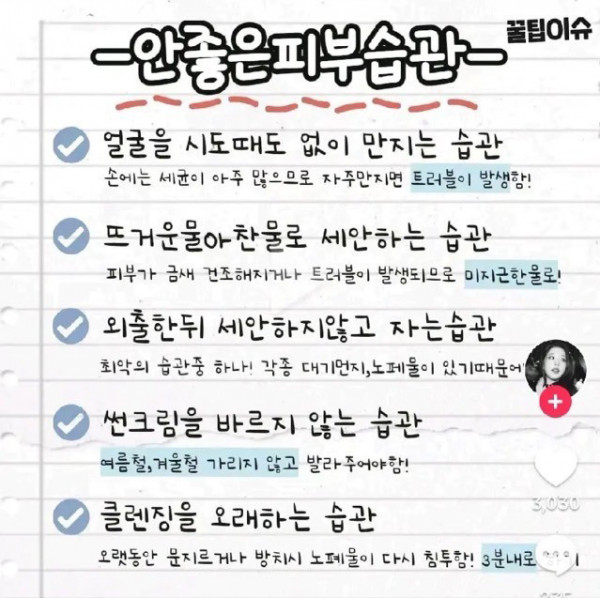 꿀팁이슈
안좋은피부습관
얼굴을 시도때도 없이 만지는 습관
손에는 세균이 아주 많으므로 자주만지면 트러블이 발생함!
뜨거운물아찬물로 세안하는 습관
피부가 금새 건조해지거나 트러블이 발생되므로 미지근한물로!
외출한뒤 세안하지않고 자는습관
최악의 습관중 하나! 각종 대기먼지,노폐물이 있기때문에
썬크림을 바르지 않는 습관
여름철,겨울철 가리지 않고 발라주어야함!
3,030
클렌징을 오래하는 습관
오랫동안 문지르거나 방치시 노폐물이 다시 침투함! 3분내로